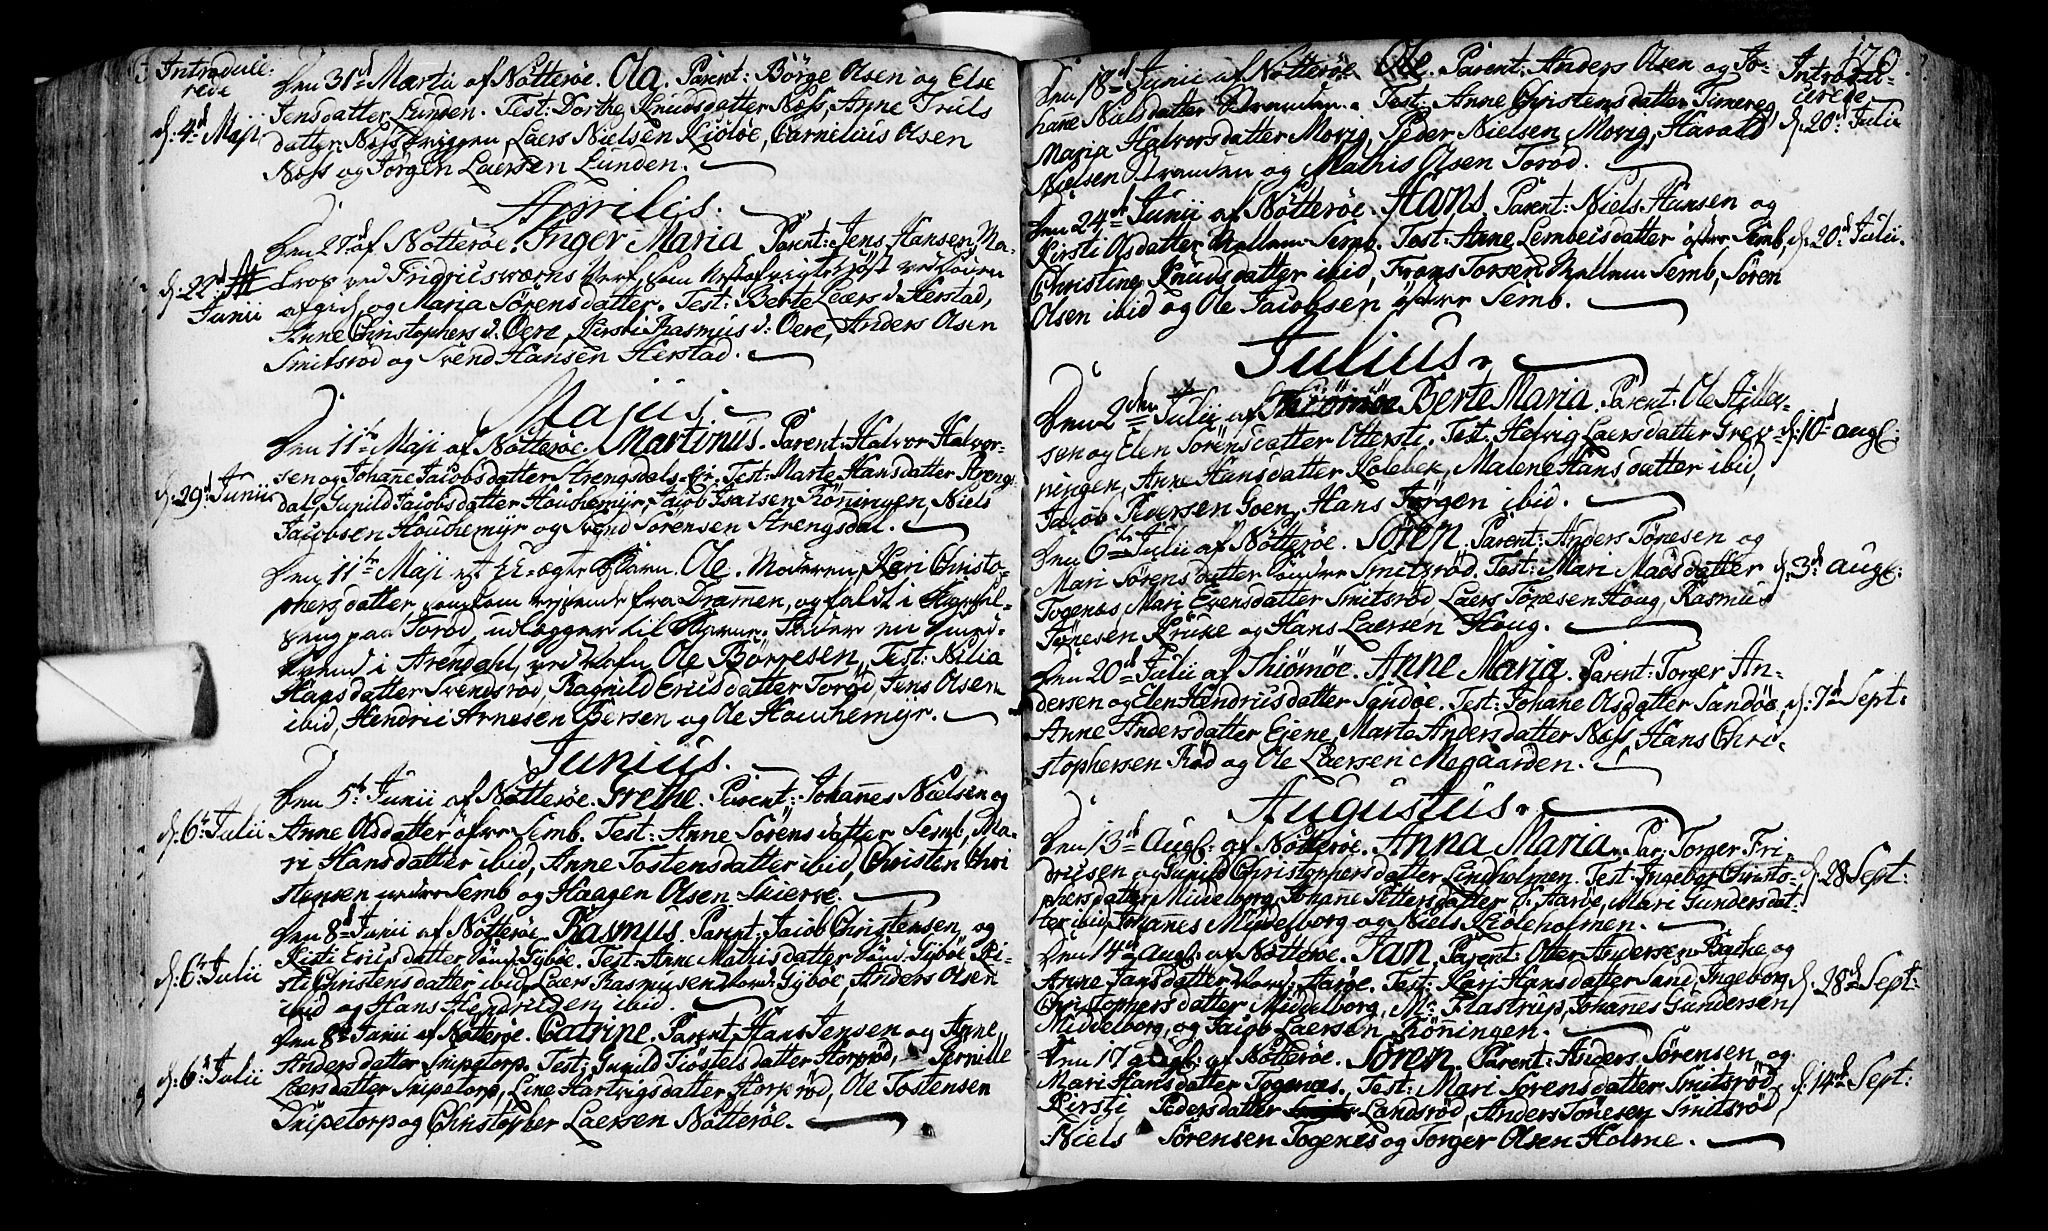 Introduce-
rede
Den 31d Martii af Nötteröe. Ola. Parent: Börge Olsen og Else
Jensdatter Lunden. Test: Dorthe Knudsdatter Nøss, Anne Truls
d: 4d Maji
datter Nøss Laers Nielsen Kiölöe, Cornelius Olsen
Nøss og Jörgen Laersen Lunden.
Aprilis.
Den 2d af Nötteröe. Inger Maria Parent: Jens Hansen, Ma-
tros ved Fridricsværns Verf, som
d: 22d
Junii
afgid, og Maria Sörensdatter. Test: Berte Laers d. Herstad,
Anne Christophers d. Oere, Kersti Rasmus d: Oere, Anders Olsen
Smitsröd og Svend Hansen Herstad.
Majus.
Den 11te Maji af Nötteröe. Martinus. Parent: Halvor Halvor-
d. 29d Junii
sen og Johanne Jacobsdatter Strengsdals-Eie. Test: Marte Hansdatter Strengs-
dal, Gunild Jacobsdatter Houchemyr, Jacob Isacsen Rönningen, Niels
Jacobsen Houchemyr og Svend Sörensen Strengsdal.
Den 11te Maji et U-ægte Barn. Ole. Moderen, Kari Christo-
phersdatter, som kom reisende fra Dramen, og faldt i Barsel-
seng paa Toröd, udlægger til Barne-Fader en Smed-
Svend i Arendahl, ved Nafn Ole Börresen. Test: Nilia
Hansdatter Svendsröd, Ragnild Ericsdatter Toröd, Jens Olsen
ibid, Hendric Arnesen Bersen og Ole Houchemyr.
Junius.
Den 5t Junii af Nötteröe. Grethe. Parent: Johannes Nielsen og
d. 6t Julii
Anne Olsdatter öfre Semb. Test: Anne Sörensdatter Semb, Ma-
ri Hansdatter ibid, Anne Tostensdatter ibid, Christen Chri
stensen nedre Semb og Haagen Olsen Skieröe.
Den 8d Junii af Nötteröe. Rasmus. Parent: Jacob Christensen og
d: 6t Julii
Kisti Ericsdatter Gyböe. Test: Anne Mathisdatter Gyböe, Ki-
sti Christensdatter ibid, Laers Rasmusen Gyböe, Anders Olsen
ibid og Hans Hendricsen ibid.
Den 8d Junii af Nötteröe. Catrine. Parent: Hans Jensen og Anne
d: 6t Julii
Andersdatter Snipetorp. Test: Gunild Kiöstelsdatter Horpröd, Pernille
Laersdatter Snipetorp, Line Hartvigsdatter Horpröd, Ole Tostensen
Snipetorp og Christopher Laersen Nötteröe.
176.
Den 18d Junii af Nötteröe Ole. Parent: Anders Olsen og Jo-
Introdu-
cerede
hane Nielsdatter Stranden. Test: Anne Christensdatter Timereg,
d: 20d Julii
Maria Halvorsdatter Movig, Peder Nielsen Movig, Havald
Nielsen Stranden og Mathis Olsen Toröd.
Den 24de Junii af Nötteröe. Hans. Parent: Niels Hansen og
Kirsti Olsdatter Mellem Semb. Test: Anne Lembeisdatter öfre Semb,
d: 20d Julii.
Christine Knudsdatter ibid, Frans Torsen Mellem Semb, Sören
Olsen ibid og Ole Jacobsen öfre Semb.
Julius.
Den 2den Julii af Thiömöe Berte Maria. Parent: Ole
sen og Elen Sörensdatter Otterste. Test: Helvig Laersdatter Grev-
d: 10d aug:
ningen, Anne Hansdatter Kolebek, Malene Hansdatter ibid,
Jacob Iversen Goen, Hans Jörgen ibid.
Den 6te Julii af Nötteröe. Sören. Parent: Anders Tönesen og
Mari Sörensdatter Smitsröd. Test: Mari Madsdatter
d: 3d aug:
Togenes, Mari Evensdatter Smitsröd, Laers Tönesen Houg, Rasmus
Tönesen Kruke og Hans Laersen Houg.
Den 20d Julii af Thiömöe. Anne Maria. Parent: Torger An-
dersen og Elen Hendricsdatter Sandöe. Test: Johane Olsdatter Sandöe,
d: 7d Sept:
Anne Andersdatter Ejene, Marte Andersdatter Nøss, Hans Chri-
stophersen Röd og Ole Laersen Megaarden.
Augustus.
Den 13d Aug: af Nötteröe. Anna Maria. Par: Torger Fri-
dricsen og Gunild Christophersdatter Lindholmen. Test: Ingebor Christo-
d: 28 Sept:
phersdatter Middelborg, Johane Pettersdatter Aaröe, Mari Gundersdat-
ter ibid, Johannes Middelborg og Niels Kioleholmen.
Den 14d Aug: af Nötteröe. Jan. Parent: Otter Andersen Bache og
Anne Jansdatter Aaröe. Test: Kari Hansdatter Sand, Ingeborg
d: 28d Sept:
Christophersdatter Middelborg, Mr Flastrup, Johanes Gundersen
Middelborg, og Jacob Laersen Rönningen.
Den 17 Aug: af Nötteröe. Sören. Parent: Anders Sörensen og
Mari Hansdatter Togenæs. Test: Mari Sörensdatter Smitsröd,
d: 14d Sept:
Kirsti Pedersdatter Landsröd, Anders Tönesen Smitsröd
Niels Sörensen Togenes og Torger Olsen Holme.